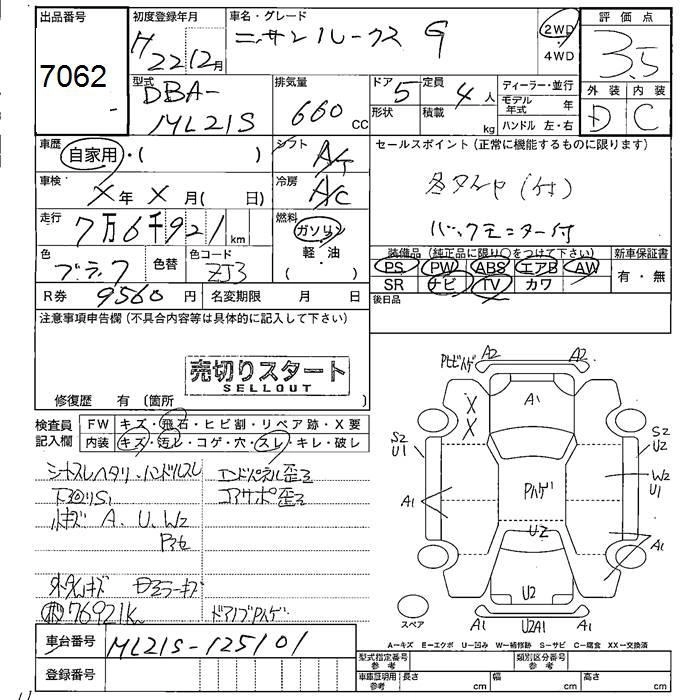 出品番号
7062
初度登録年月
H22 12月
車名・グレード
ニッサンルークス G
2WD
4WD
評価点
3.5
外装 内装
D C
型式
DBA-
ML21S
排気量
660 CC
ドア 5
形状
定員 4 人
積載 kg
ディーラー・並行
モデル年式 年
ハンドル 左・右
車歴
自家用・( )
シフト
A/T
セールスポイント(正常に機能するものに限ります)
車検
X年 X月( 日)
冷房
A/C
バックモニター付
走行
7万6千921km
燃料
ガソリン
軽・油
( )
色
色替
色コード
ZJ3
装備品(純正品に限り○をつけて下さい)
PS PW ABS エアB AW
SR ナビ TV カワ
新車保証書
有・無
後日品
R券 9560円
名変期限 月 日
注意事項申告欄(不具合内容等は具体的に記入して下さい)
売切りスタート
SELLOUT
修復歴 有(箇所 )
検査員
記入欄
FW キズ・飛石・ヒビ割・リペア跡・X要
内装 キズ・汚レ・コゲ・穴・スレ・キレ・破レ
シートスレヘタリ・ハンドルスレ
エンドパネル歪ミ
下廻りS1
コアサポ歪ミ
A、U、W2
76921km
ドアノブPハゲ
PLビハゲ
A2
A2
A1
X
X
S2
U1
S2
U2
Pハゲ
W2
U1
A1
U2
A1
U2
スペア
A1
U2A1
A1
A=キズ E=エクボ U=凹み W=補修跡 S=サビ C=腐食 XX=交換済
車台番号
ML21S-125101
登録番号
型式指定番号
参考
類別区分番号
参考
車庫証明用
参考
長さ cm
幅 cm
高さ cm